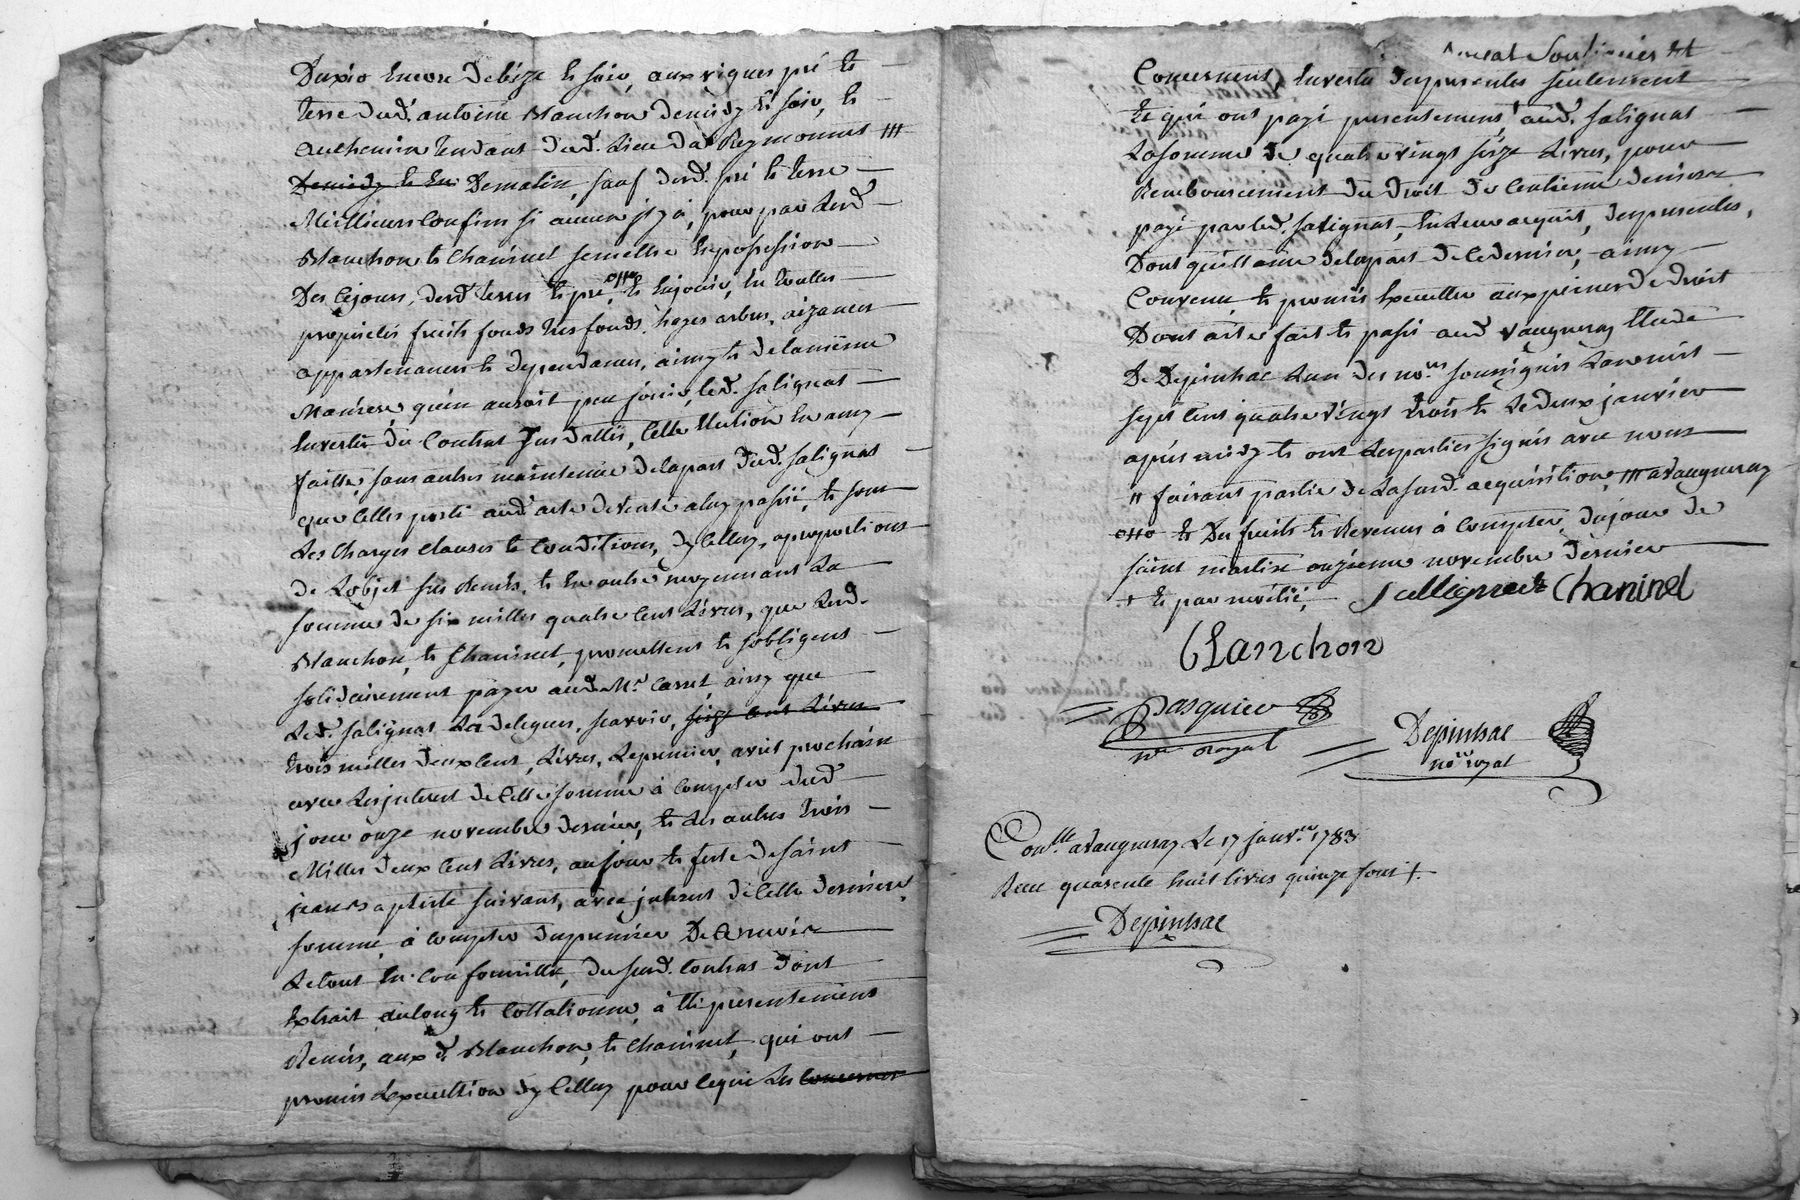 Duxio encore de bize et soir, aux vignes pré et
terre dud. antoine Blanchon de midy et soir, et
au chemin tendant dud. Lieu da Reymonnet ///
De midy et en De matin, sauf desd. pré et terre
Meillieurs Confins si aucun jl y a, pour par Lesd.
Blanchon et Chaninel se mettre En possession
Des ce jour, desd. terres et pré, o//o et En jouir, En toutes
proprietés fruits fonds tres fonds, hayes arbres, aizances
appartenances et dependances, ainsy et de la meme
Maniere, qu'en auroit peu jouir, led. Salignat
En vertu du Contrat sus datté, Cette Election En amy
faitte, sans autres maintenue de la part dud. Salignat
que Celles porté aud. acte de vente a luy passé, et sous
Les Charges Clauses et Conditions, d'jcelluy, a proportions
de L'objet sus Remis, et En outre moyennant La
somme de six milles quatre Cent Livres, que Lesd.
Blanchon, et Chaninel, promettent et s'obligent
solidairement payer aud. Mr. Carret ainsy que
Led. Salignat Les delegues, scavoir, seize Cent Livres
trois milles deux Cent, Livres, Le premier, avril prochain
avec Les jnterest de Cette somme à Compter dud.
jour onze novembre dernier, et Les autres trois
Milles deux Cent Livres, au jour et feste de saint
jean Baptiste suivant, avec jnterest de Cette derniere
somme, à Compter du premier De
Le tout En Conformitté, du susd. Contrat dont
Extrait, au long et Collationné, à Eté presentement
Remis, aux d. Blanchon, et Chaninel, qui ont
promis L'executtion d'jcelluy pour Ce qui Les Concernes
royal Soussignés Et
Concernent, En vertu des presentes seulement
Et qui ont payé presentement, aud. Salignat
La somme de quatre vings seize Livres, pour
Remboursement du Droit du Centieme denier
payé par led. Salignat, En Leur acquit, des presentes,
Dont quittance de la part de Ce dernier, ainsy
Convenu, et promis Executter aux peines de droit
Dont acte fait et passé aud. vaugneray Etude
De Depinhac L'un des nores soussignés L'an mil
sept Cent quatre vingt trois et Le deux janvier
apres midy et ont Les parties signés avec nous
// faisant partie de La susd. acquisition, /// a vaugneray
o//o et Des fruits et Revenus à Compter, du jour de
saint martin onzieme novembre dernier
+ et par moitié, Sallignat Chaninel
Blanchon
Pasquier
nre Royal
Depinhac
nore royal
Conlle a vaugneray Le 17 janvier 1783
Recu quarente huit livres quinze sous +.
Depinhac